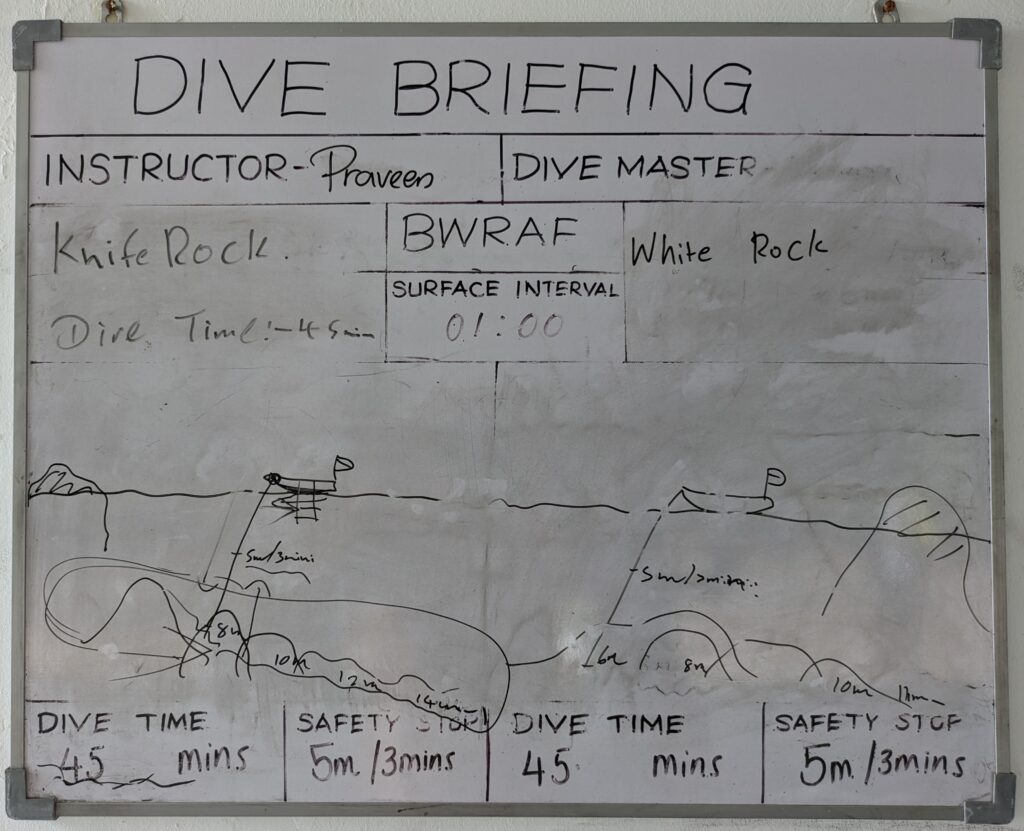 DIVE BRIEFING
INSTRUCTOR - Praveen
DIVE MASTER
Knife Rock.
Dive Time:- 45min
BWRAF
SURFACE INTERVAL
01:00
White Rock
5m/3min
8m
10m
12m
14m
5m/3min
6m
8m
10m
DIVE TIME
45 mins
SAFETY STOP
5m/3mins
DIVE TIME
45 mins
SAFETY STOP
5m/3mins